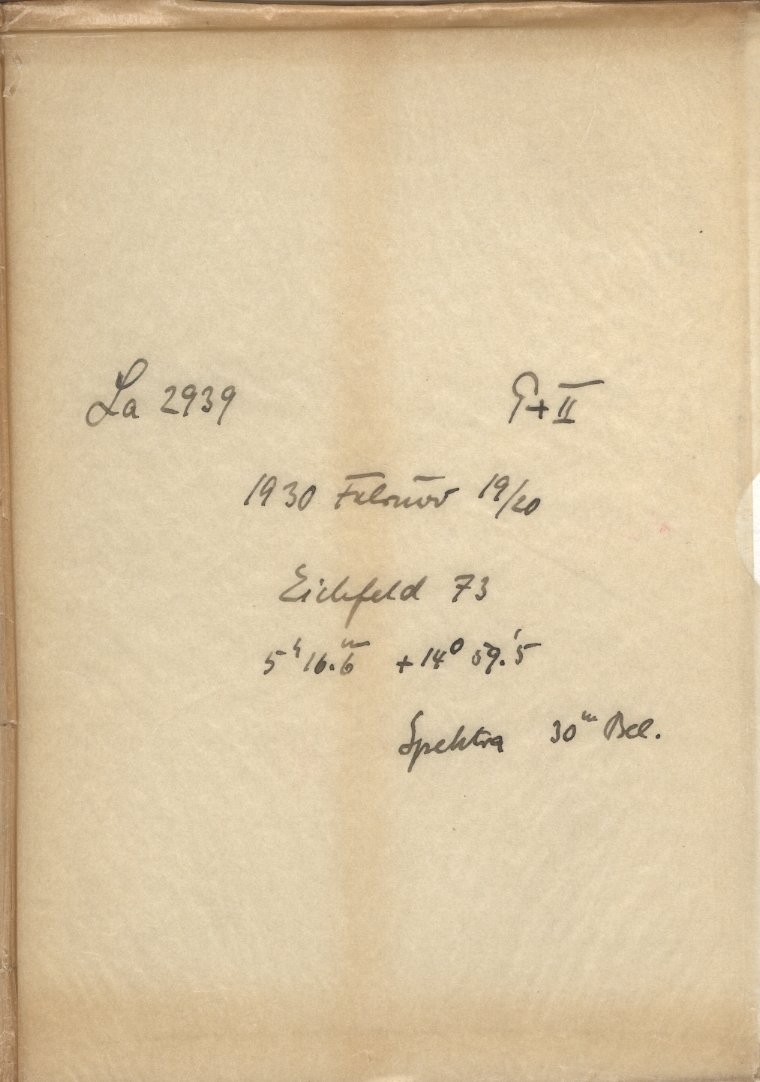 La 2939 P+II
1930 Februar 19/20
Eichfeld 73
5ʰ16.ᵐ6 +14⁰ 59.′5
Spektra 30ᵐ Bel.